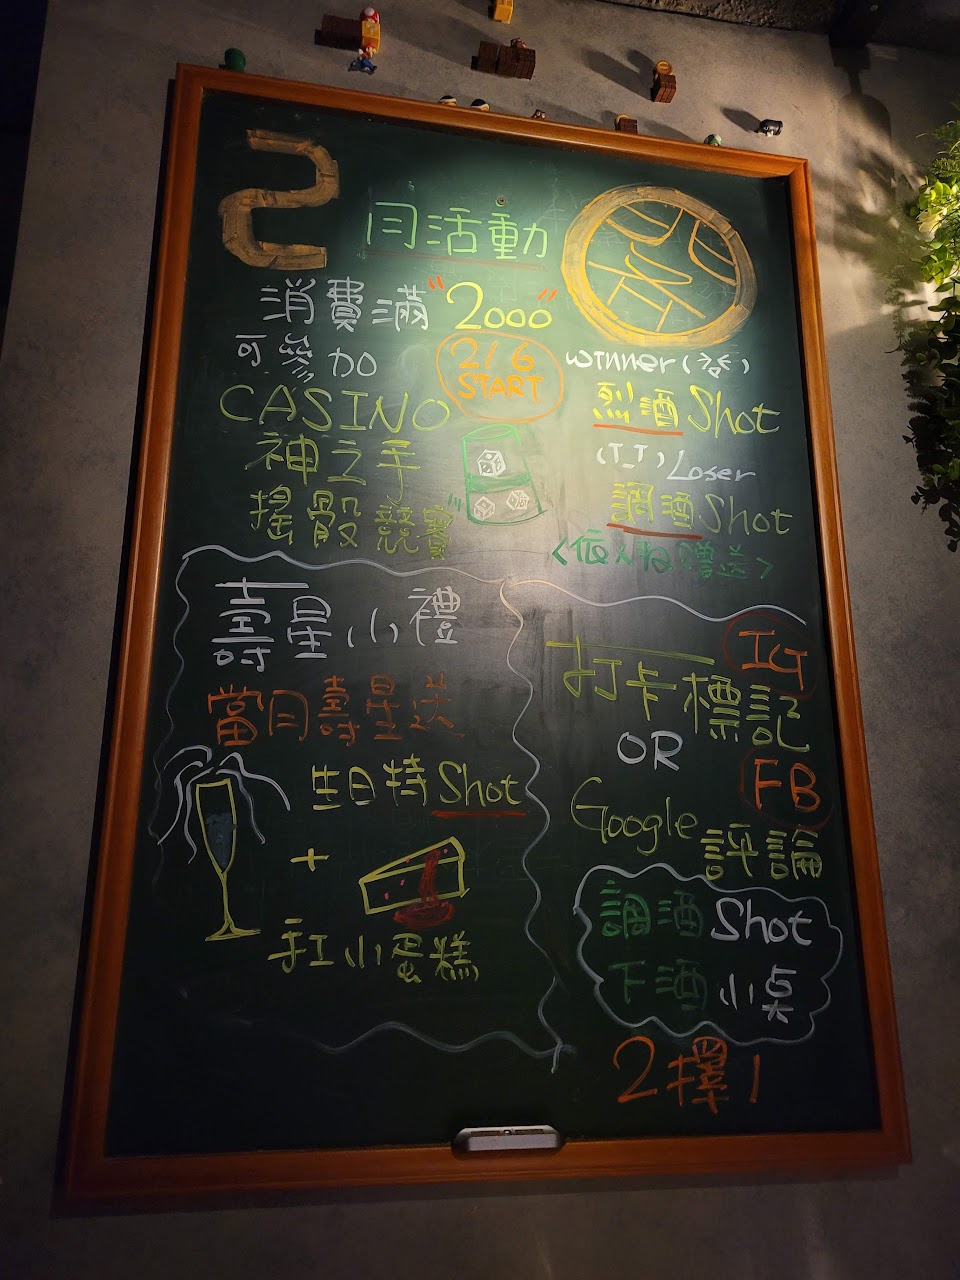 2月活動
消費滿"2000"
可參加
2/6
START
CASINO
神之手
搖骰競賽
winner
烈酒Shot
(T_T)Loser
調酒Shot
<依人數贈送>
壽星小禮
當月壽星送
生日特Shot
+
手工小蛋糕
IG
打卡標記
OR
FB
Google評論
調酒Shot
下酒小点
2擇1